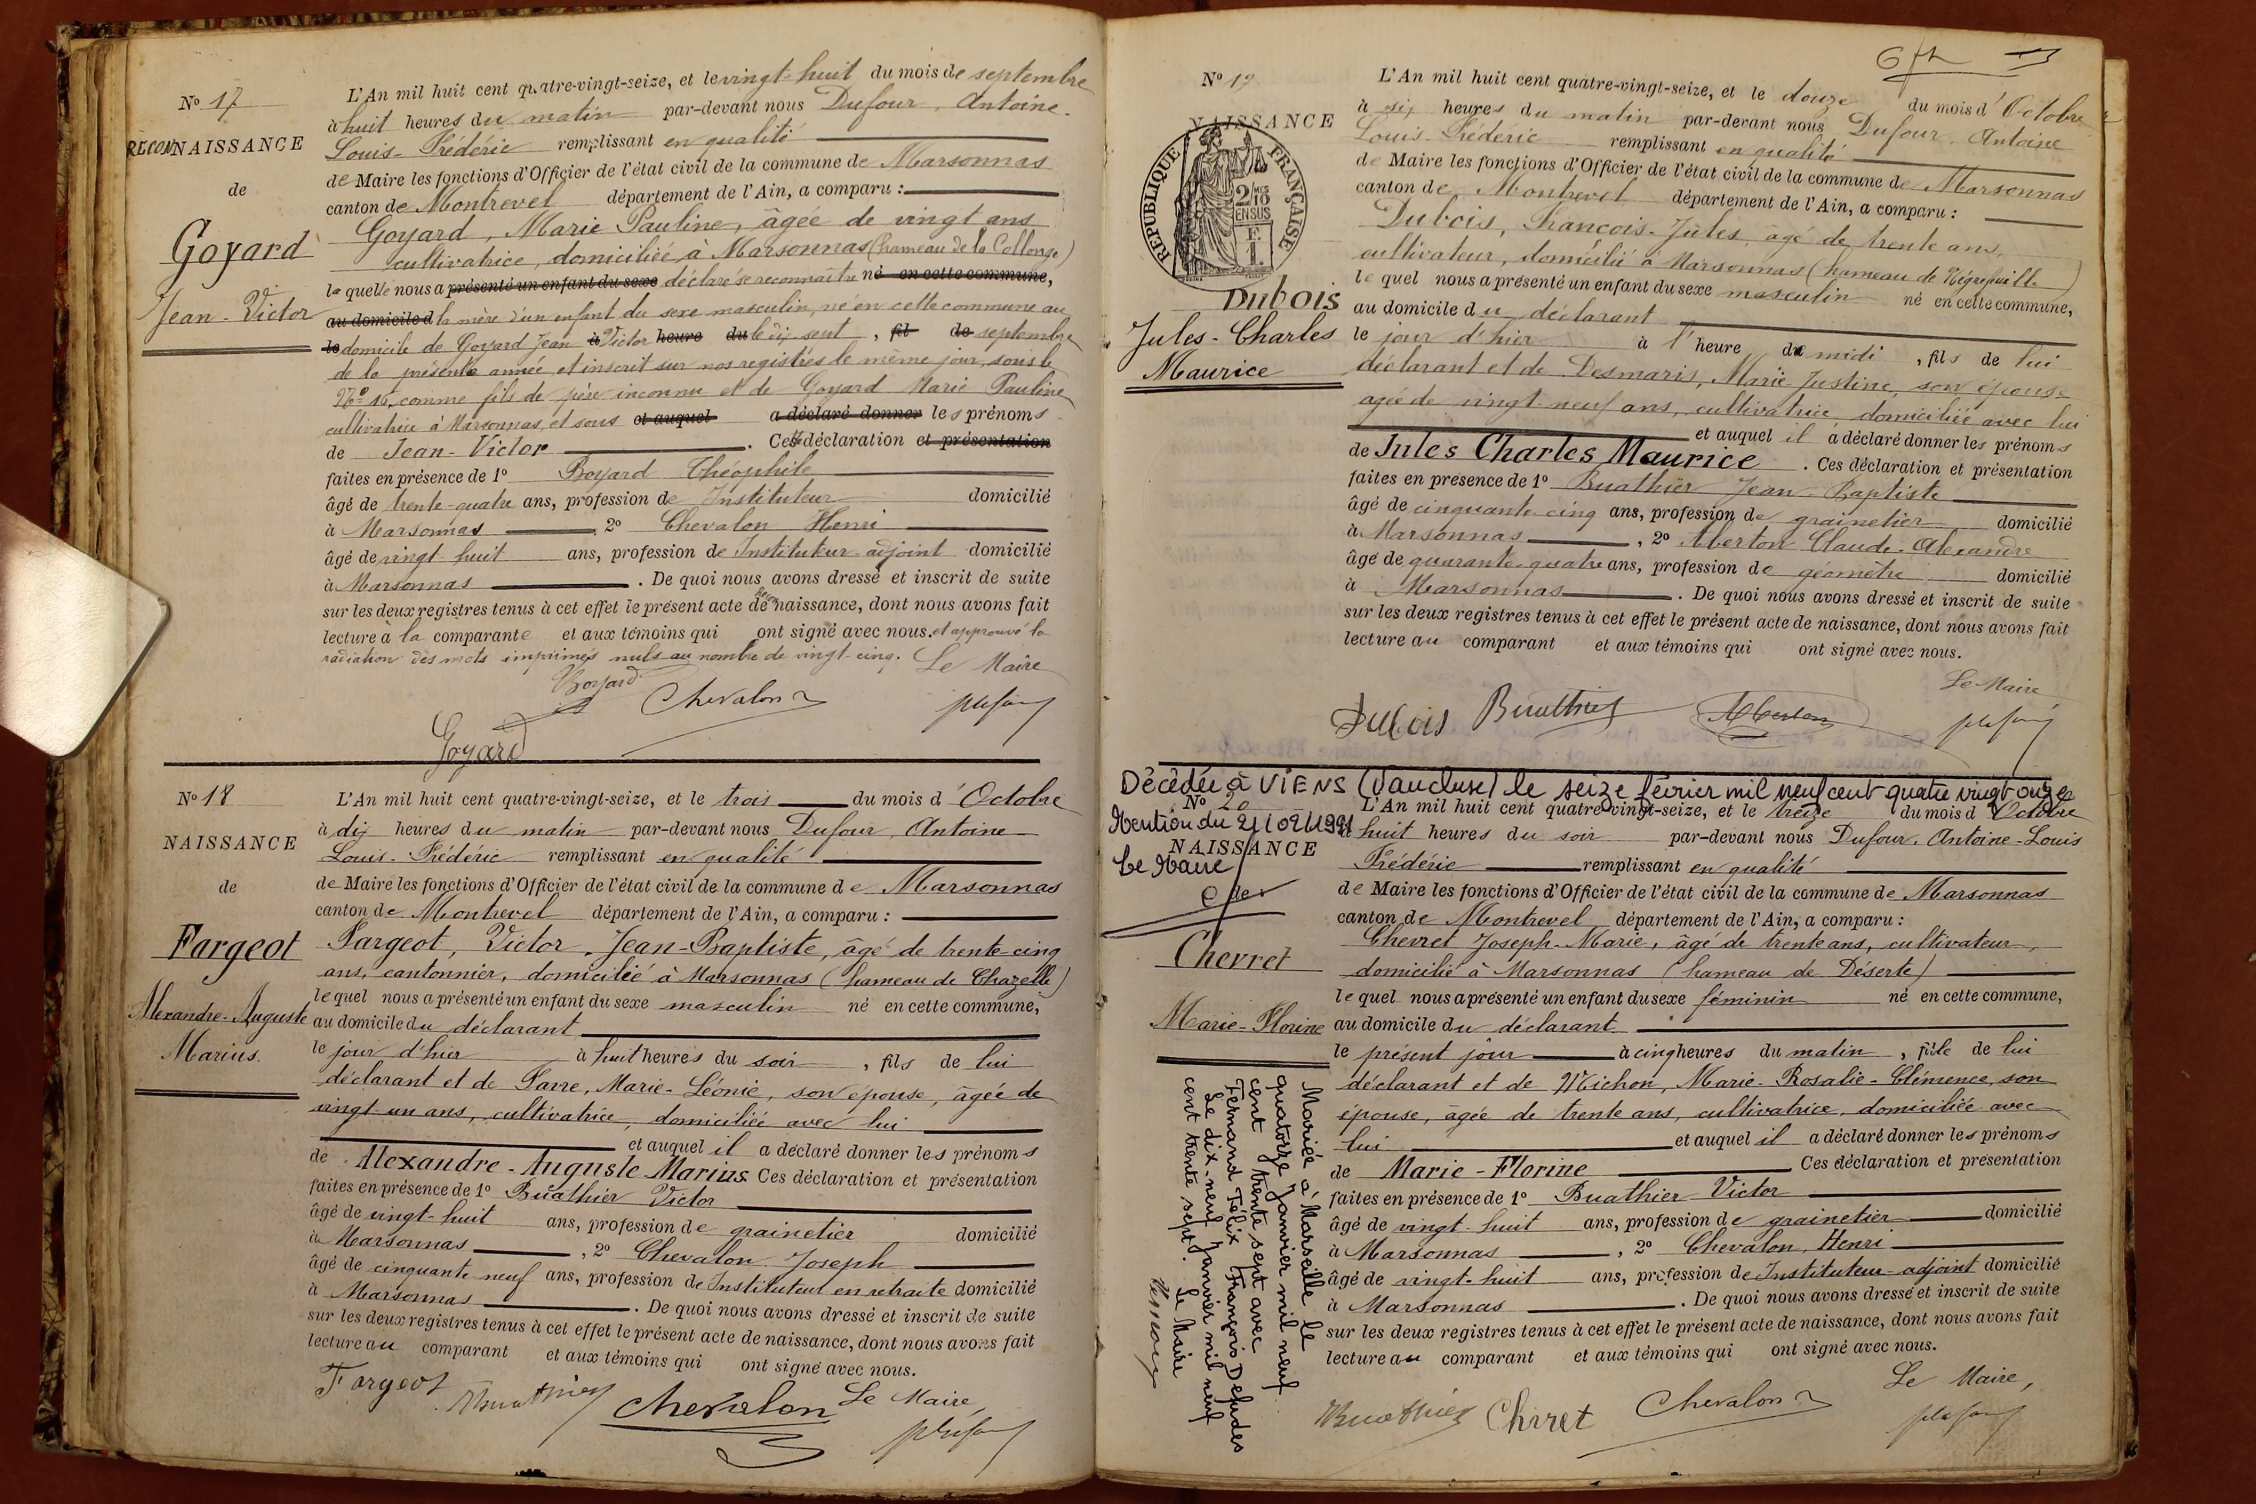 Nº 17
RECONNAISSANCE
de
Goyard
Jean-Victor
L'An mil huit cent quatre-vingt-seize, et le vingt-huit du mois de septembre
à huit heures du matin par-devant nous Dufour, Antoine-
Louis-Frédéric remplissant en qualité
de Maire les fonctions d'Officier de l'état civil de la commune de Marsonnas
canton de Montrevel département de l'Ain, a comparu :
Goyard, Marie Pauline, âgée de vingt ans
cultivatrice, domiciliée à Marsonnas (hameau de la Collonge)
laquelle nous a présenté un enfant du sexe déclaré se reconnaître né en cette commune,
au domicile d la mère d'un enfant du sexe masculin, né en cette commune au
le domicile de Goyard Jean à Victor heure du le dix sept, fil de septembre
de la présente année et inscrit sur nos registres le même jour, sous le
Nº 16, comme fils de père inconnu et de Goyard Marie Pauline
cultivatrice à Marsonnas, et sous et auquel a déclaré donner les prénoms
de Jean-Victor. Cette déclaration et présentation
faites en présence de 1º Boyard Théophile
âgé de trente-quatre ans, profession de Instituteur domicilié
à Marsonnas, 2º Chevalon Henri
âgé de vingt-huit ans, profession de Instituteur-adjoint domicilié
à Marsonnas. De quoi nous avons dressé et inscrit de suite
sur les deux registres tenus à cet effet le présent acte de reconnaissance, dont nous avons fait
lecture à la comparante et aux témoins qui ont signé avec nous. et approuvé la
radiation des mots imprimés nuls au nombre de vingt-cinq. Le Maire
Boyard Chevalon
Goyard
Nº 18
NAISSANCE
de
Fargeot
Alexandre-Auguste
Marius.
L'An mil huit cent quatre-vingt-seize, et le trois du mois d'Octobre
à dix heures du matin par-devant nous Dufour, Antoine
Louis-Frédéric remplissant en qualité
de Maire les fonctions d'Officier de l'état civil de la commune de Marsonnas
canton de Montrevel département de l'Ain, a comparu :
Fargeot, Victor, Jean-Baptiste, âgé de trente-cinq
ans, cantonnier, domicilié à Marsonnas (hameau de Chazelle)
lequel nous a présenté un enfant du sexe masculin né en cette commune,
au domicile du déclarant
le jour d'hier à huit heures du soir, fils de lui
déclarant et de Favre, Marie-Léonie, son épouse, âgée de
vingt-un ans, cultivatrice, domiciliée avec lui
et auquel il a déclaré donner les prénoms
de Alexandre-Auguste-Marius Ces déclaration et présentation
faites en présence de 1º Buathier Victor
âgé de vingt-huit ans, profession de grainetier domicilié
à Marsonnas, 2º Chevalon Joseph
âgé de cinquante neuf ans, profession de Instituteur en retraite domicilié
à Marsonnas. De quoi nous avons dressé et inscrit de suite
sur les deux registres tenus à cet effet le présent acte de naissance, dont nous avons fait
lecture au comparant et aux témoins qui ont signé avec nous.
Fargeot Buathier Chevalon Le Maire,
Nº 19
NAISSANCE
RÉPUBLIQUE FRANÇAISE
2/10
EN SUS
Dubois
Jules-Charles
Maurice
L'An mil huit cent quatre-vingt-seize, et le douze du mois d'Octobre
à six heures du matin par-devant nous Dufour, Antoine
Louis-Frédéric remplissant en qualité
de Maire les fonctions d'Officier de l'état civil de la commune de Marsonnas
canton de Montrevel département de l'Ain, a comparu :
Dubois, François-Jules, âgé de trente ans,
cultivateur, domicilié à Marsonnas (hameau de
lequel nous a présenté un enfant du sexe masculin né en cette commune,
au domicile du déclarant
le jour d'hier à l'heure de midi, fils de lui
déclarant et de Desmaris, Marie Justine, son épouse
âgée de vingt-neuf ans, cultivatrice, domiciliée avec lui
et auquel il a déclaré donner les prénoms
de Jules Charles Maurice. Ces déclaration et présentation
faites en présence de 1º Buathier Jean-Baptiste
âgé de cinquante-cinq ans, profession de grainetier domicilié
à Marsonnas, 2º Aberton Claude-Alexandre
âgé de quarante-quatre ans, profession de géomètre domicilié
à Marsonnas. De quoi nous avons dressé et inscrit de suite
sur les deux registres tenus à cet effet le présent acte de naissance, dont nous avons fait
lecture au comparant et aux témoins qui ont signé avec nous.
Le Maire
Dubois Buathier Aberton
Décédée à VIENS (Vaucluse) le seize février mil neuf cent quatre vingt onze
Mention du 21/02/1991
Le Maire
Nº 20
NAISSANCE
Chevret
Marie-Florine
L'An mil huit cent quatre-vingt-seize, et le treize du mois d'Octobre
à huit heures du soir par-devant nous Dufour, Antoine-Louis
Frédéric remplissant en qualité
de Maire les fonctions d'Officier de l'état civil de la commune de Marsonnas
canton de Montrevel département de l'Ain, a comparu :
Chevret Joseph-Marie, âgé de trente ans, cultivateur,
domicilié à Marsonnas (hameau de Déserte)
lequel nous a présenté un enfant du sexe féminin né en cette commune,
au domicile du déclarant
le présent jour à cinq heures du matin, fille de lui
déclarant et de Michon, Marie-Rosalie-Clémence, son
épouse, âgée de trente ans, cultivatrice, domiciliée avec
lui et auquel il a déclaré donner les prénoms
de Marie-Florine Ces déclaration et présentation
faites en présence de 1º Buathier Victor
âgé de vingt-huit ans, profession de grainetier domicilié
à Marsonnas, 2º Chevalon, Henri
âgé de vingt-huit ans, profession de Instituteur-adjoint domicilié
à Marsonnas. De quoi nous avons dressé et inscrit de suite
sur les deux registres tenus à cet effet le présent acte de naissance, dont nous avons fait
lecture au comparant et aux témoins qui ont signé avec nous.
Le Maire,
Buathier Chevret Chevalon
Mariée à Marseille le
quatorze Janvier mil neuf
cent trente sept avec
Fernand Félix François Defudes
Le dix-neuf Janvier mil neuf
cent trente sept. Le Maire